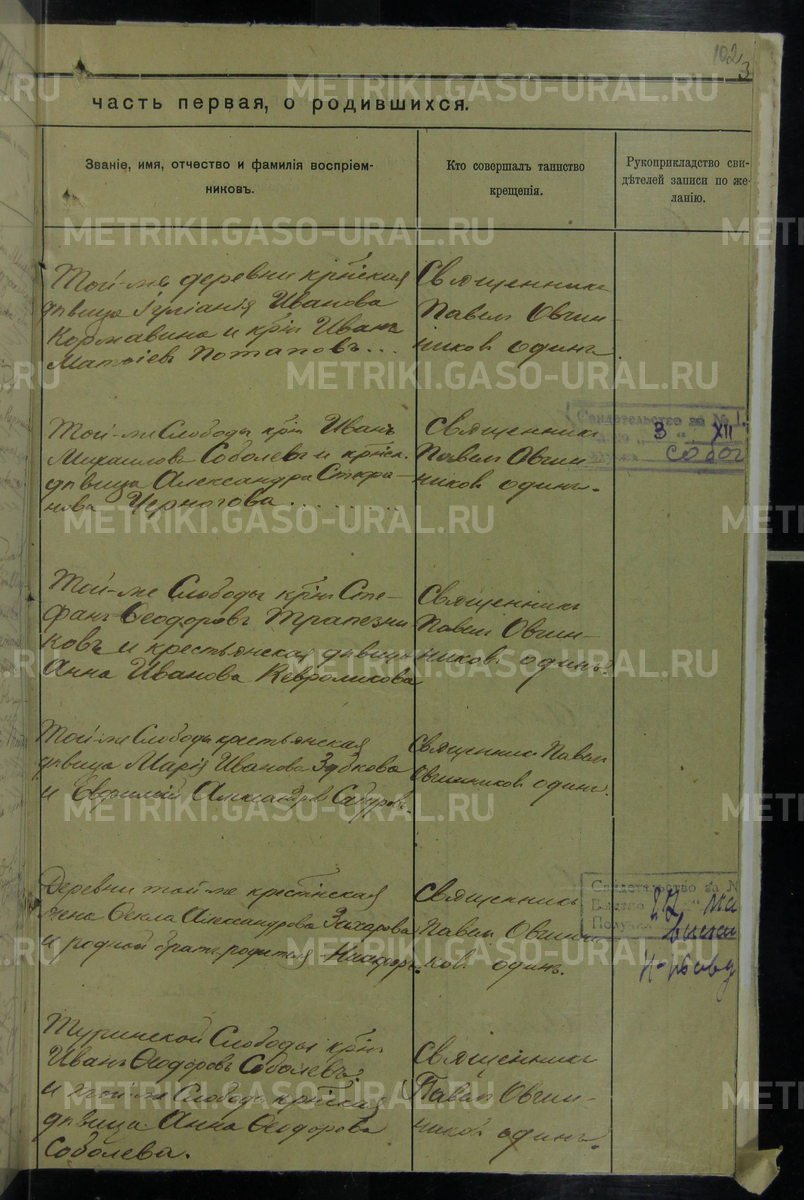 102
3
часть первая, о родившихся.
Званіе, имя, отчество и фамилія воспріем-
никовъ.
Кто совершалъ таинство
крещенія.
Рукоприкладство сви-
дѣтелей записи по же-
ланію.
Той-же деревни
дѣвица Іуліанія Иванова
Коржавина и Иванъ
Матѳіевъ Потаповъ...
Священникъ
Павелъ Овчин-
никовъ одинъ.
Той-же Слободы Иванъ
Михаиловъ Соболевъ и
дѣвица Александра Стефа-
нова Черногова........
Священникъ
Павелъ Овчин-
никовъ одинъ.
Свидетельство за №
3 XII
Той-же Слободы Сте-
фанъ Ѳеодоровъ Трапезни-
ковъ и крестьянская дѣвица
Анна Иванова
Священникъ
Павелъ Овчин-
никовъ одинъ.
Той-же Слободы крестьянская
дѣвица Марія Иванова Зубкова
и
Священникъ Павелъ
Овчинниковъ одинъ.
Деревни той-же
жена Ѳекла Александрова Захарова
и родной братъ родителя
Священникъ
Павелъ Овчинни-
ковъ одинъ.
Свидетельство за №
Туринской Слободы
Иванъ Ѳеодоровъ Соболевъ
и той-же Слободы
дѣвица Анна Ѳеодорова
Соболева.
Священникъ
Павелъ Овчин-
никовъ одинъ.
METRIKI.GASO-URAL.RU